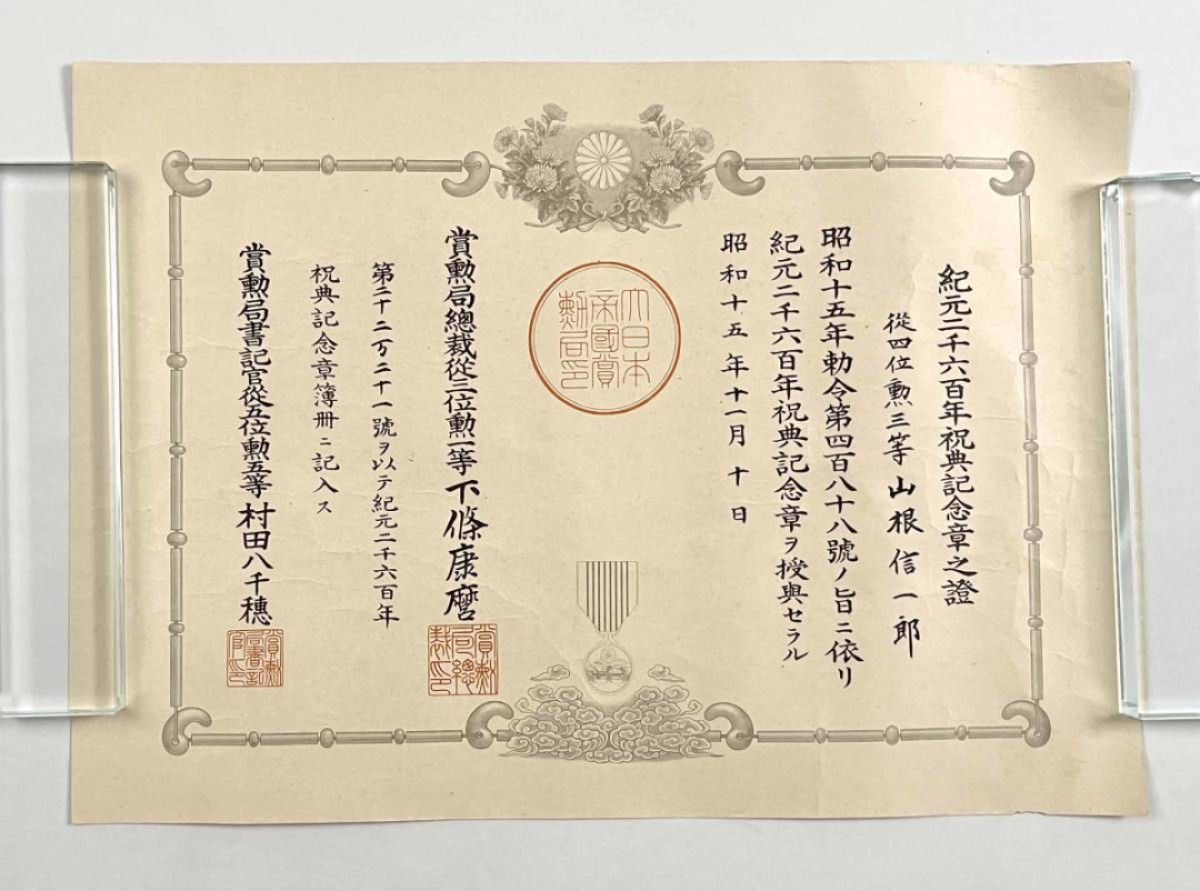 紀元二千六百年祝典記念章之證
從四位勲三等山根信一郎
昭和十五年勅令第四百八十八號ノ旨ニ依リ
紀元二千六百年祝典記念章ヲ授與セラル
昭和十五年十一月十日
大日本
帝國賞
勲局印
賞勲局總裁從三位勲一等下條康麿
賞勲
局總
裁印
第二十二万二十一號ヲ以テ紀元二千六百年
祝典記念章簿冊ニ記入ス
賞勲局書記官從五位勲五等村田八千穗
賞勲
局書記
官印